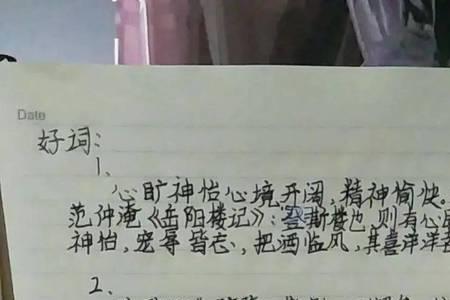 Date
好词:
1、
心旷神怡心境开阔,精神愉快。
范仲淹《岳阳楼记》:登斯楼也,则有心
神怡,宠辱皆忘,把酒临风,其喜洋洋
2、